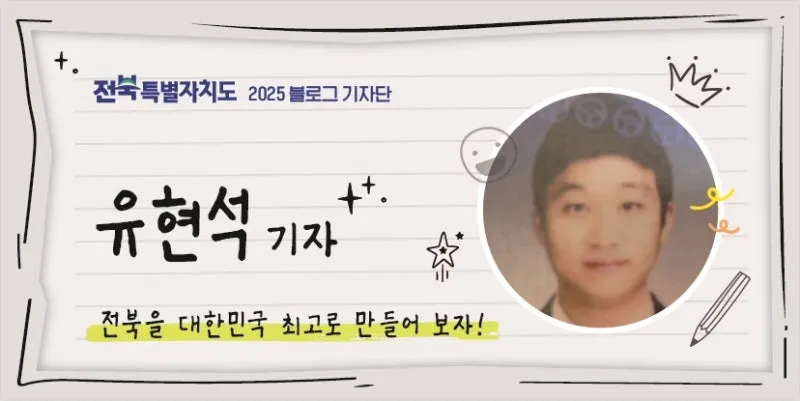 전북특별자치도 2025 블로그 기자단
유현석 기자
전북을 대한민국 최고로 만들어 보자!